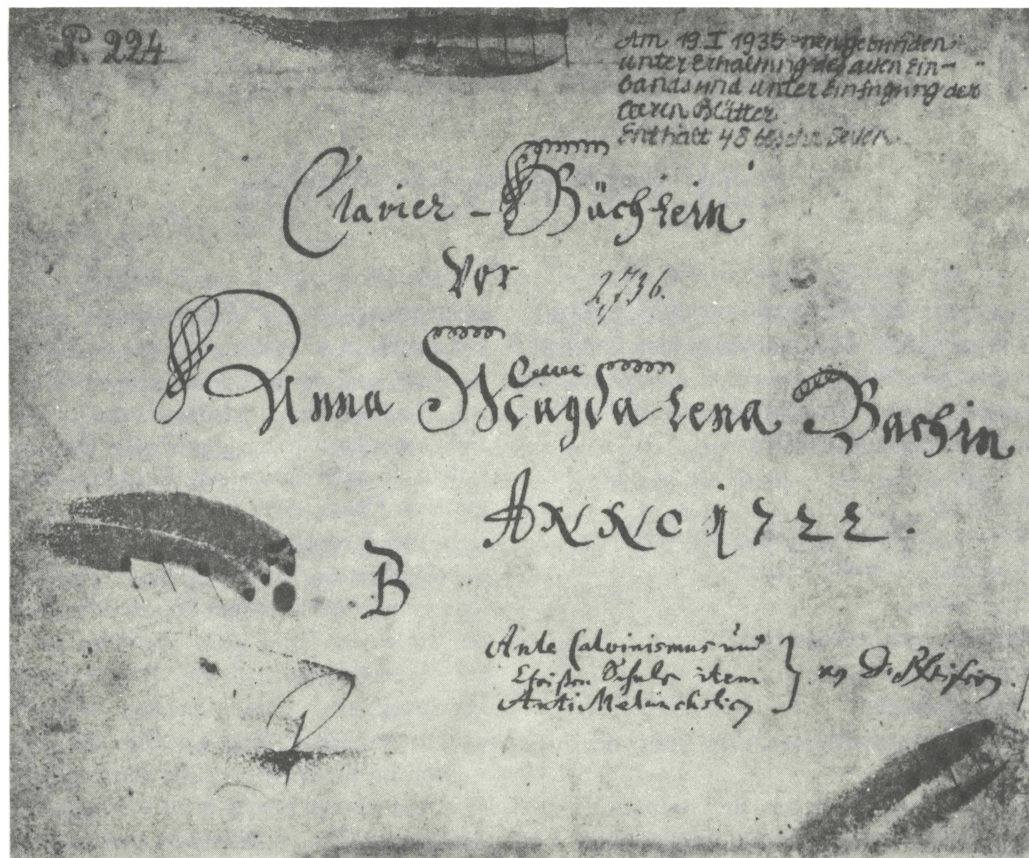 P. 224
Am 19. I 1935 neugebunden
unter Erhaltung des alten Ein-
bands und unter Einfügung der
leeren Blätter
Enthält 48 beschr. Seiten.
Clavier-Büchlein
vor
2736.
Anna Magdalena Bachin
ANNO 1722.
B
Ante Calvinismus und
Christen Schule item
Anti Melancholicus